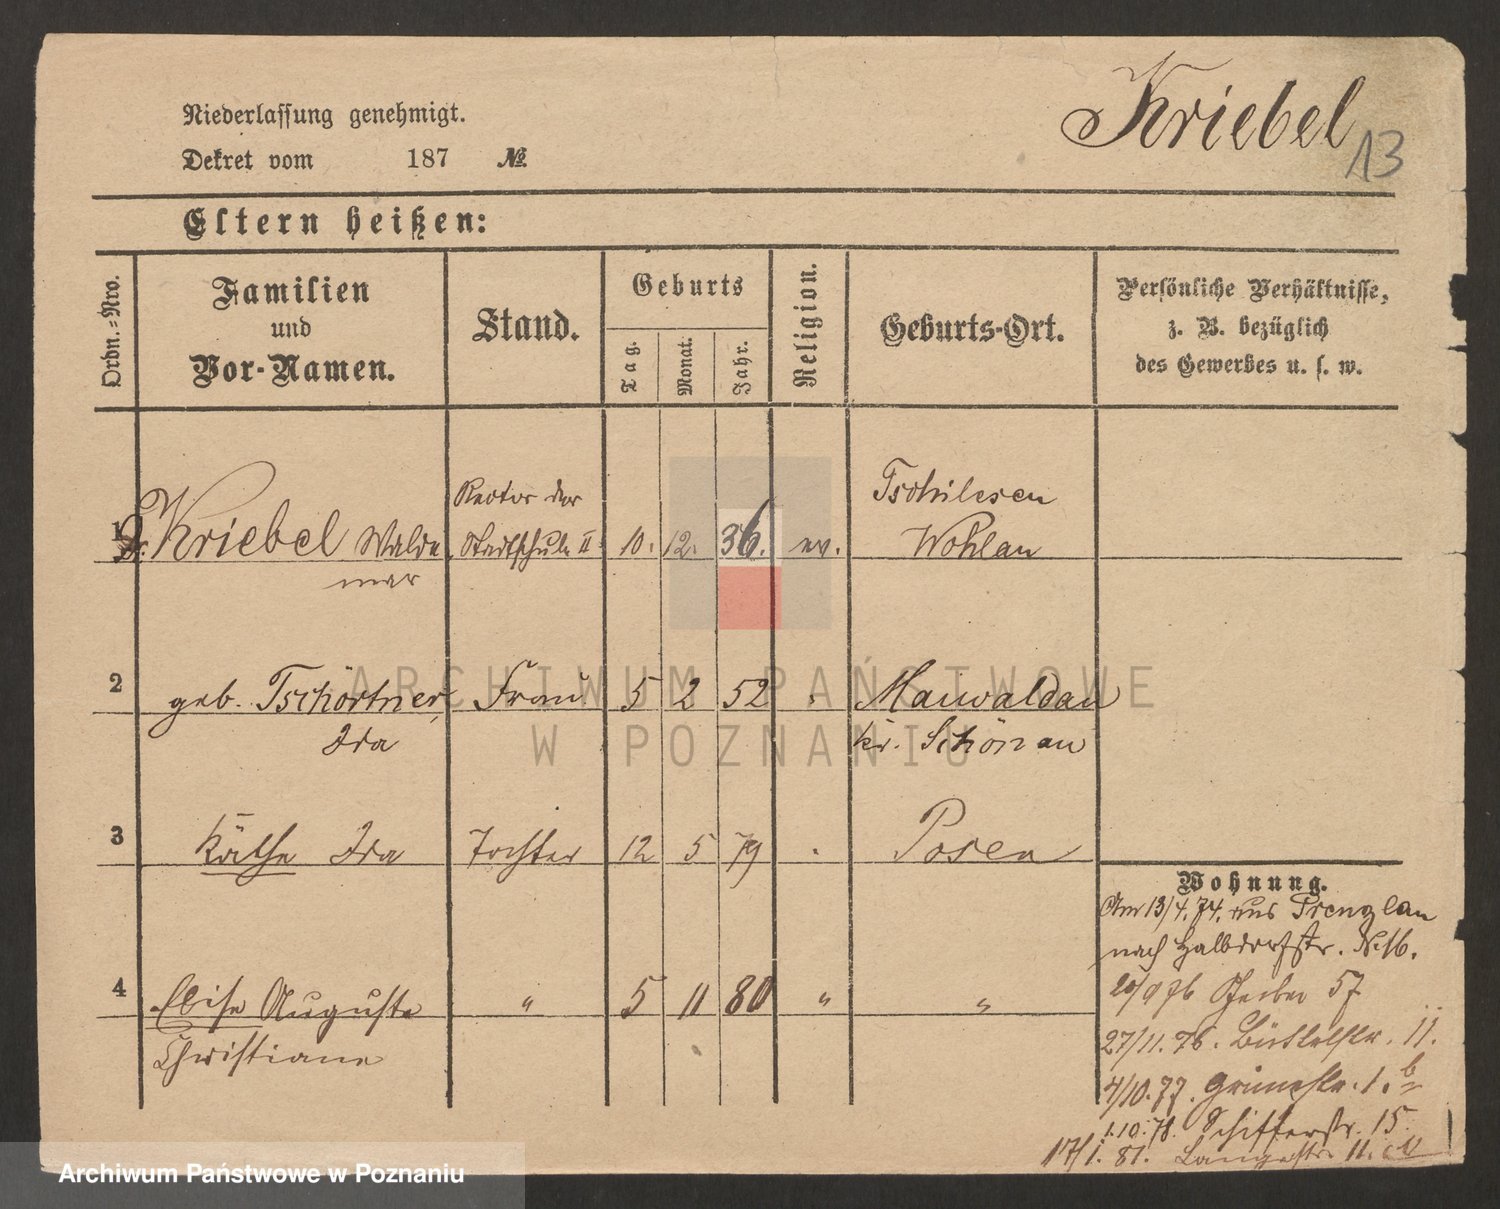 Kriebel
13
Niederlassung genehmigt.
Dekret vom 187 №
Eltern heißen:
Ordn.=Nro.
Familien
und
Vor-Namen.
Stand.
Geburts
Tag.
Monat.
Jahr.
Religion.
Geburts-Ort.
Persönliche Verhältnisse,
z. B. bezüglich
des Gewerbes u. s. w.
1 Dr. Kriebel Walde
mar
Rector der
Stadtschule II
10. 12. 36. ev.
Tschilesen
Wohlau
2 geb. Tschörtner,
Ida
Frau 5 2 52
Maiwaldau
Kr. Schönau
3 Käthe Ida Tochter 12 5 79 Posen
4 Elise Auguste
Christiane
" 5 11 80 " "
Wohnung.
Am 13/4. 74. aus Prenzlau
nach Halbdorfstr. N. 16.
20/9 76 57
27/11. 76. Büttelstr. 11.
4/10. 77. Grünestr. 1. b
1.10.78. Schifferstr. 15.
17/1. 81. Langestr. 11.
ARCHIWUM PAŃSTWOWE
W POZNANIU
Archiwum Państwowe w Poznaniu